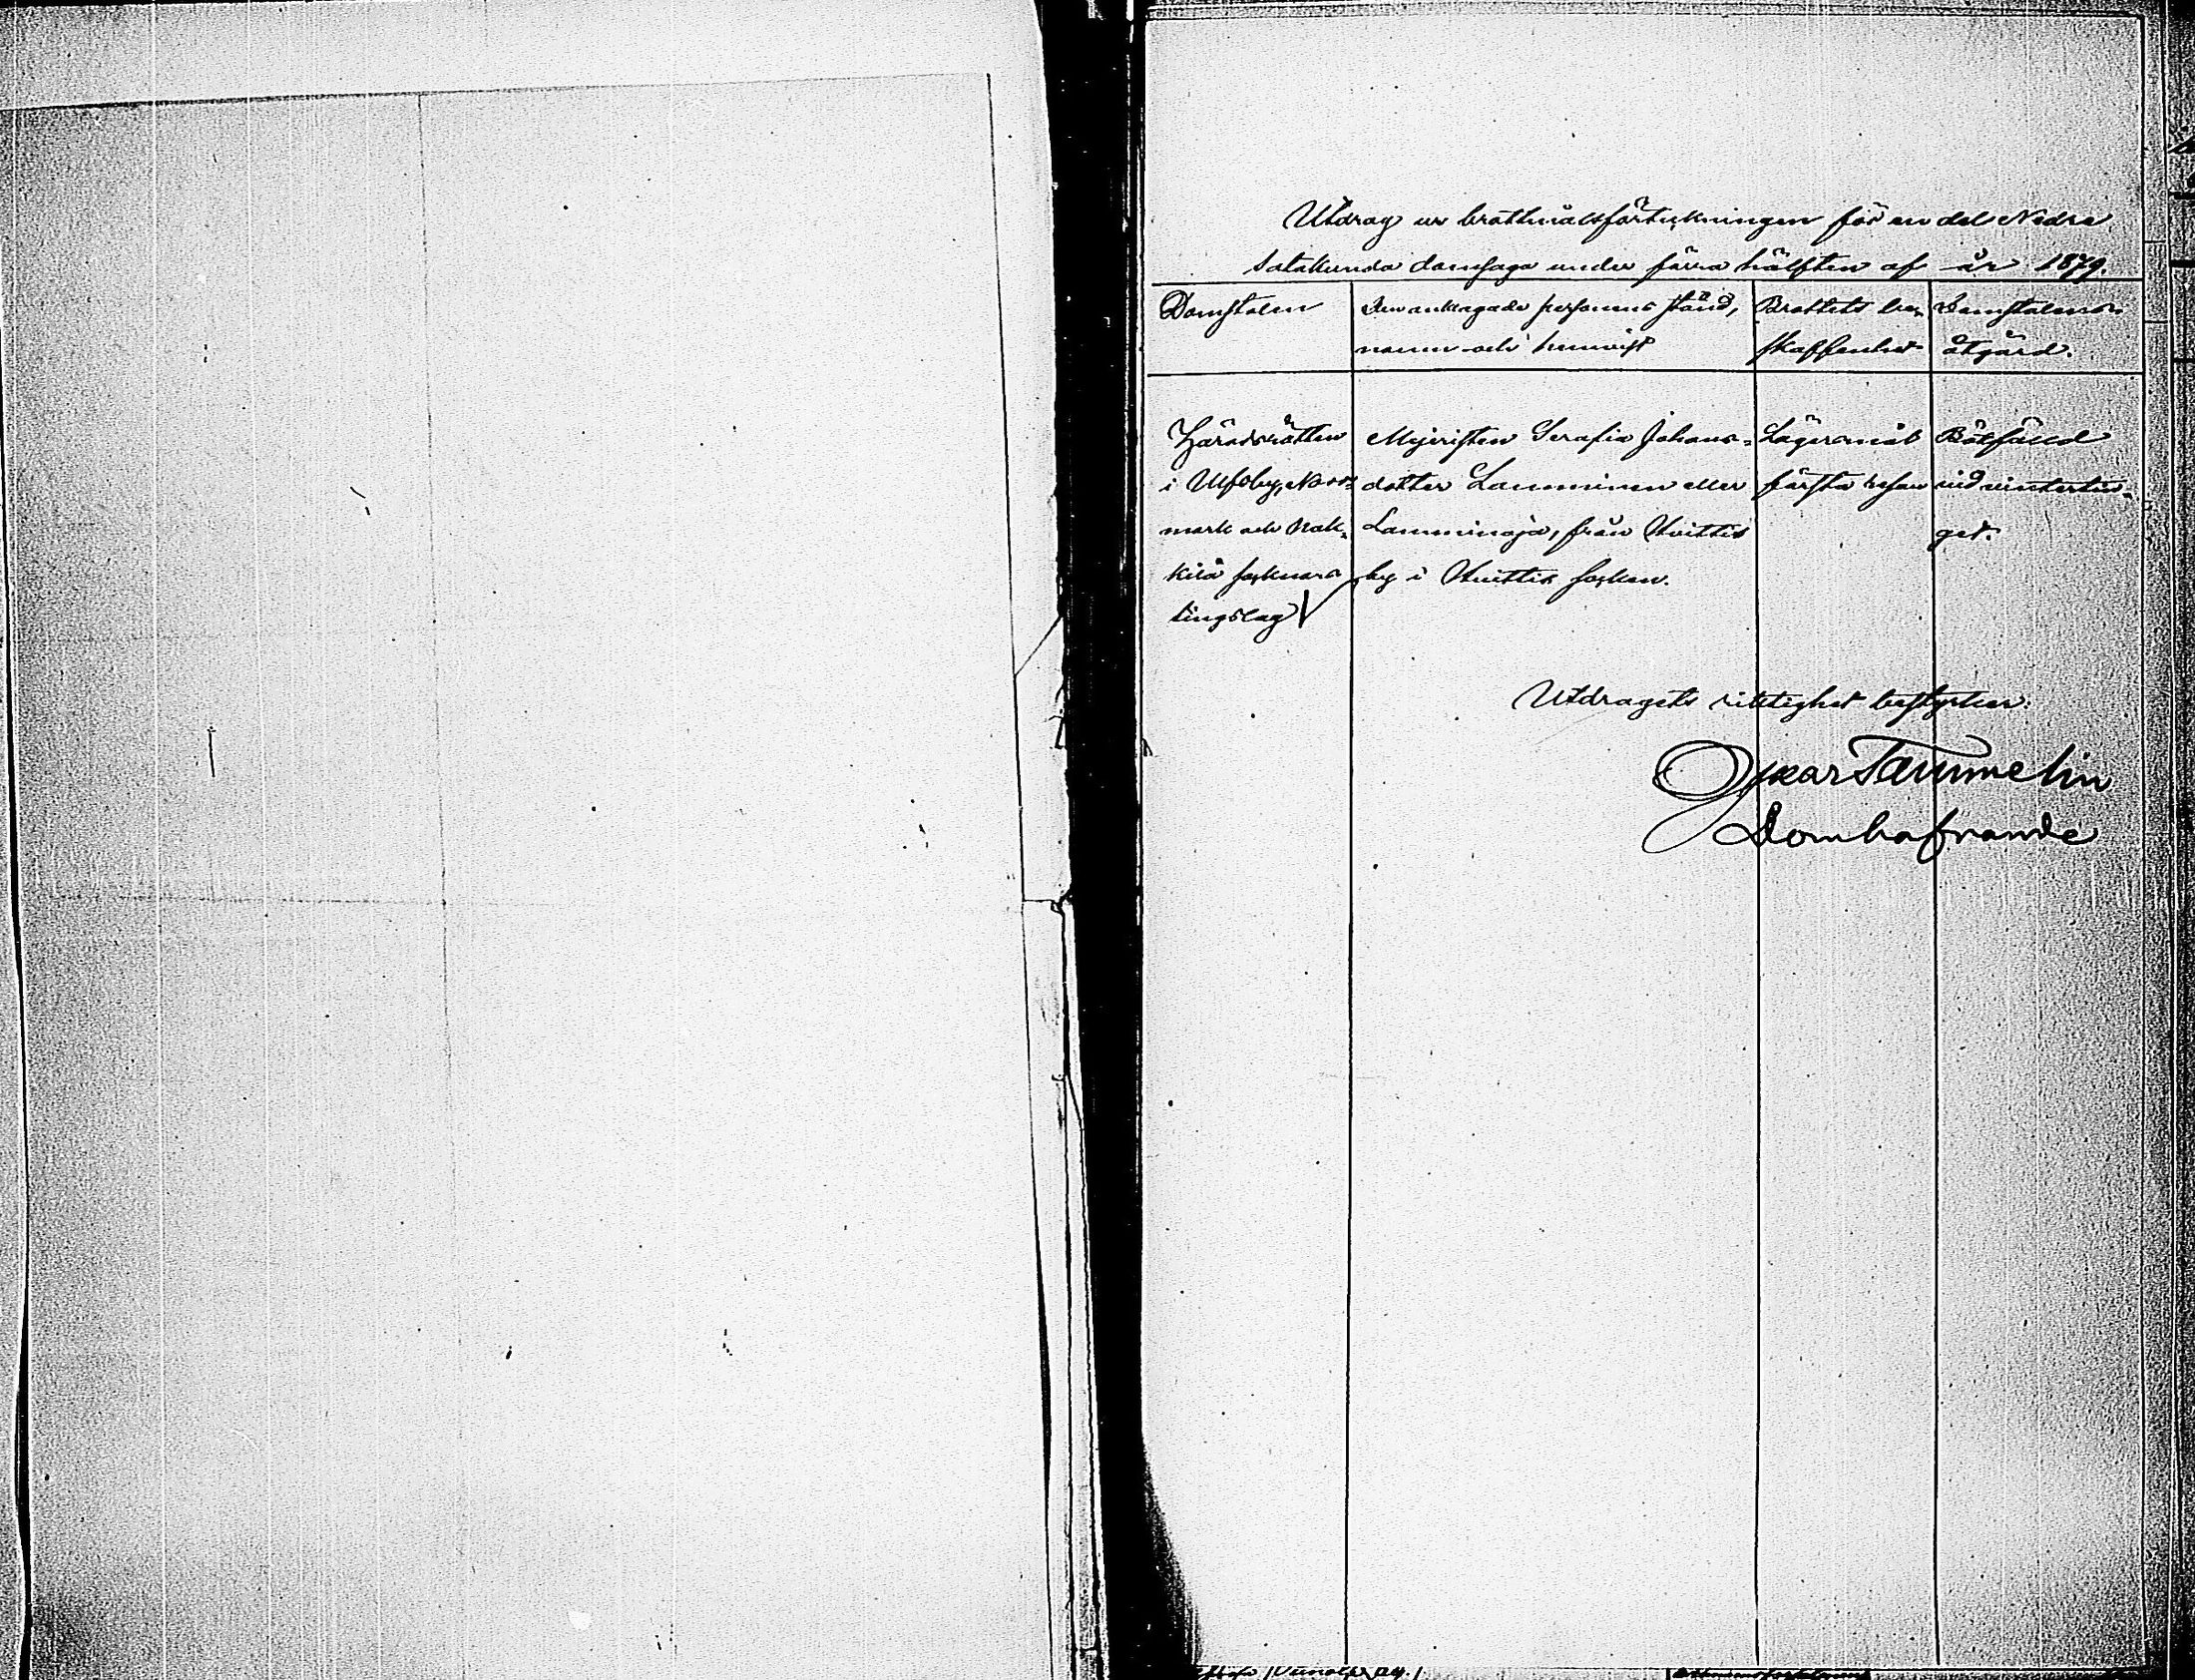 Utdrag ur brottmålsförteckningen för en del Nedre
Satakunda domsaga under förra hälften af år 1879.
Domstolen
Den anklagade personens stånd,
namn och hemvist
Brottets be-
skaffenhet
Domstolens
åtgärd.
Häradsrätten
i Ulfsby, Norr-
mark och Nak-
kila socknars
tingslag
Mejeristen Serafia Johans-
dotter Lamminen eller
Lamminoja, från Huittis
by i Huittis socken.
Lägersmål
första resan
Bötfälld
vid vintertin-
get.
Utdragets riktighet bestyrker:
Oskar Tammelin
Domhafvande